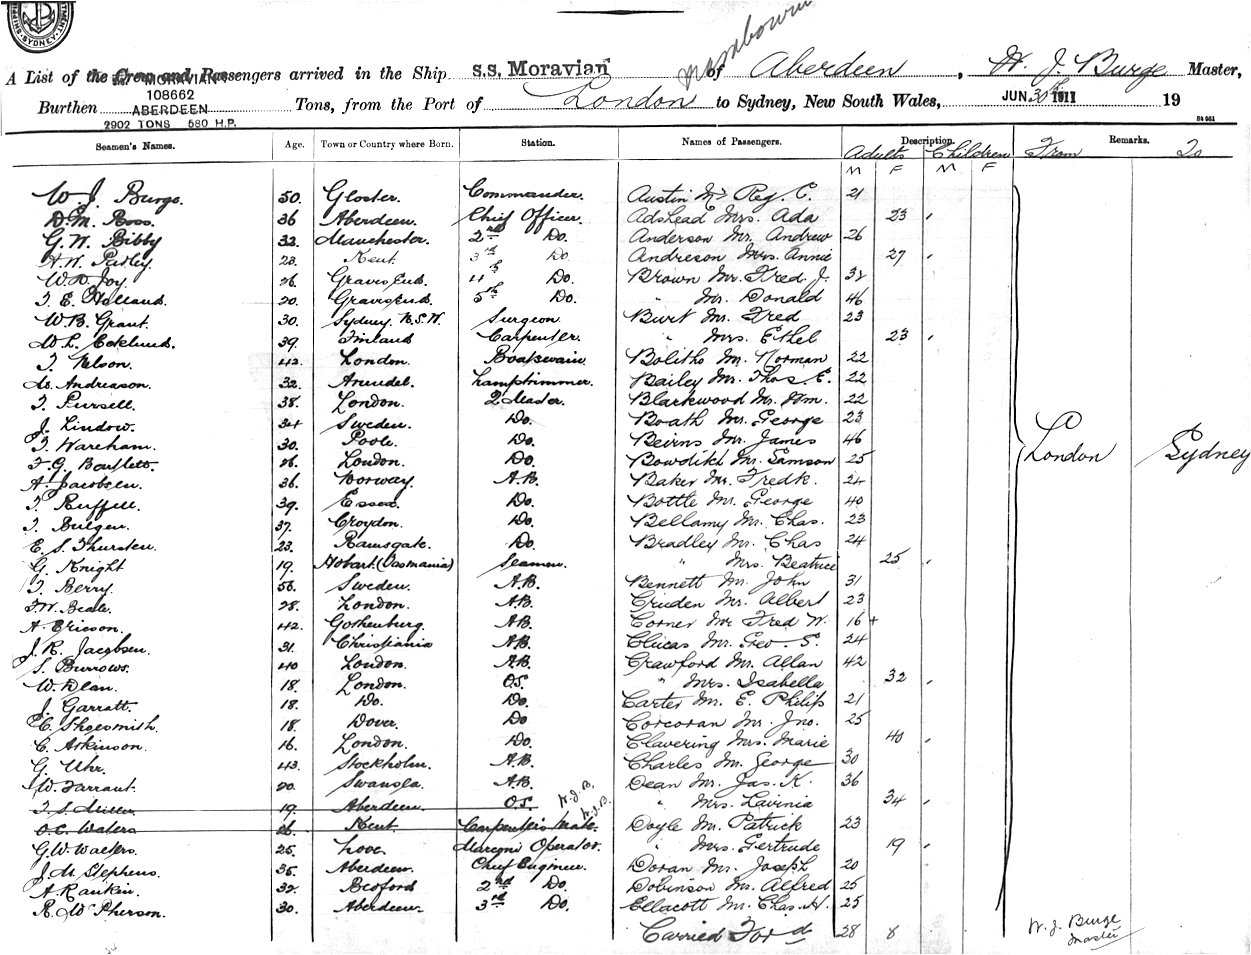 SYDNEY
A List of the Crew and Passengers arrived in the Ship s.s. Moravian of Aberdeen, W. J. Burge Master,
S.S. MORAVIAN
108662
Burthen ABERDEEN Tons, from the Port of London to Sydney, New South Wales, JUN 30th 1911 19
2902 TONS 580 H.P.
Seamen's Names. Age. Town or Country where Born. Station. Names of Passengers. Description. Remarks.
Adults Children From To
M F M F
W. J. Burge. 50. Gloster. Commander. Austin Mr Reg. C. 21
D. M. Ross. 36 Aberdeen. Chief Officer. Adshead Mrs. Ada 23
G. W. Bibby 32. Manchester. 2nd Do. Anderson Mr. Andrew 26
A. W. Padley. 23. Kent. 3rd Do Andreson Mrs. Annie 27
W. R. Joy. 26. Gravesend. 4th Do. Brown Mr. Fred. J. 32
T. E. Holland. 20. Gravesend. 5th Do. " Mr. Donald 46
W. B. Grant. 30. Sydney N.S.W. Surgeon Burt Mr. Fred 23
W. L. Ecklund. 39. Finland Carpenter. " Mrs. Ethel 23
T. Nelson. 42. London. Boatswain. Bolitho Mr. Norman 22
W. Andreason. 32. Arundel. Lamptrimmer. Bailey Mr. Thos E. 22
T. Pursell. 38. London. 2 Master. Blackwood Mr. Wm. 22
J. Lindow. 34 Sweden. Do. Boath Mr. George 23
T. Wareham. 30. Poole. Do. Beirns Mr. James 46
F. G. Bartlett. 26. London. Do. Bowdikh Mr. Samson 25
A. Jacobsen. 36. Norway. A.B. Baker Mr. Fredk. 24
T. Ruffell. 39. Essex. Do. Bottle Mr. George 40
T. Bulgen. 37. Croydon. Do. Bellamy Mr. Chas. 23
E. S. Thursten. 23. Ramsgate. Do. Bradley Mr. Chas 24
G. Knight 19. Hobart. (Tasmania) Seaman. " Mrs. Beatrice 25
T. Berry. 56. Sweden. A.B. Bennett Mr. John 31
F. W. Beale. 28. London. A.B. Cruden Mr. Albert 23
A. Ericson. 42. Gothenburg. A.B. Corner Mr Fred W. 16+
J. R. Jacobsen. 31. Christiania A.B. Clucas Mr. Geo. S. 24
S. Burrows. 40 London. A.B. Crawford Mr. Allan 42
W. Dean. 18. London. O.S. " Mrs. Isabella 32
J. Garratt. 18. Do. Do. Carter Mr. E. Philip 21
C. Shoesmith. 18 Dover. Do Corcoran Mr. Jno. 25
C. Atkinson. 16. London. Do. Clavering Mrs. Marie 40
G. Uhr. 43. Stockholm. A.B. Charles Mr. George 30
W. Farrant. 20. Swansea. A.B. Dean Mr. Jas. K. 36
T. S. Miller 19. Aberdeen. O.S. W.J.B. " Mrs. Lavinia 34
O. C. Waters 26. Kent. Carpenter's Mate. W.J.B. Doyle Mr. Patrick 23
G. W. Walters. 25. Looe. Marconi Operator. " Mrs. Gertrude 19
J. M. Stephens. 35. Aberdeen. Chief Engineer. Doran Mr. Joseph 20
A. Rankin. 32. Bedford 2nd Do. Dobinson Mr. Alfred 25
R. McPherson. 30. Aberdeen. 3rd Do. Ellacott Mr. Chas. H. 25
London Sydney
Carried Ford 28 8
W. J. Burge
Master